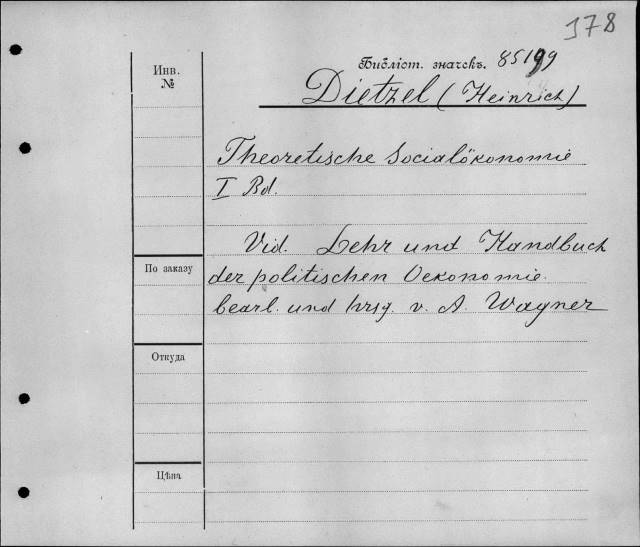 378
Библіот. значекъ. 85199
Инв.
№
Dietzel (Heinrich)
Theoretische Socialökonomie
I Bd.
Vid. Lehr und Handbuch
По заказу
der politischen Oekonomie.
bearl. und hrsg. v. A. Wagner
Откуда
Цѣна